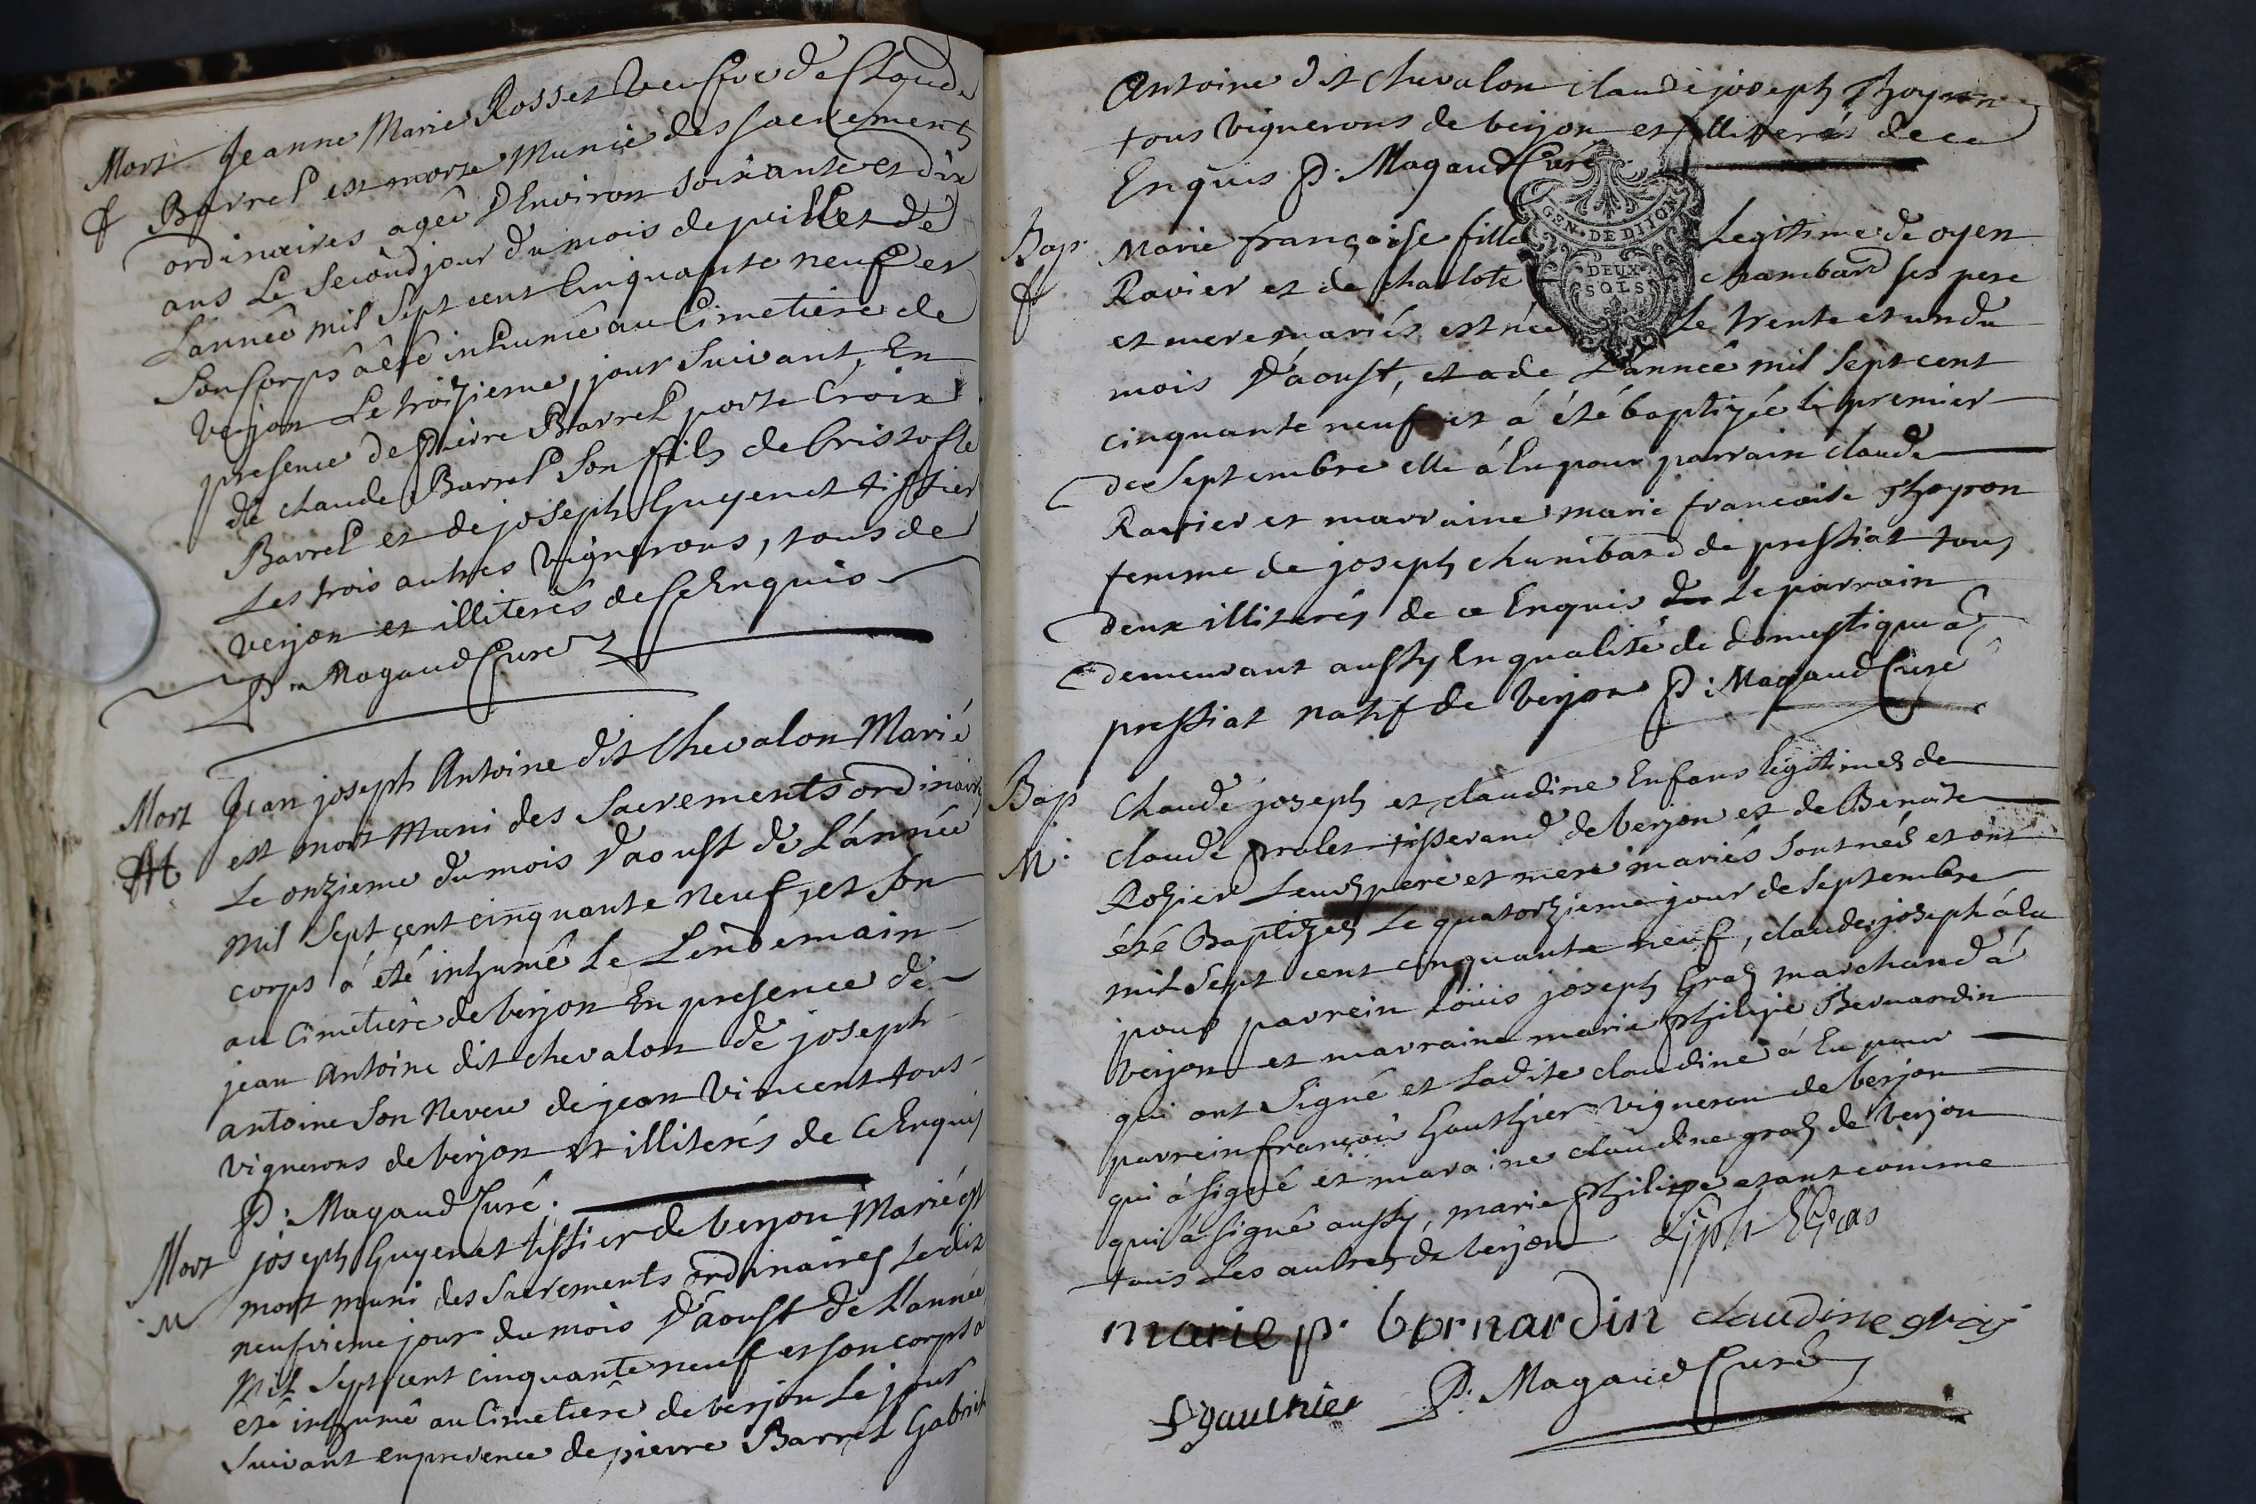 Mort Jeanne Marie Rosset Veufve de Claude
Barrel est morte Munie des sacrements
ordinaires agée d'Environ soixante et dix
ans Le second jour du mois de juillet de
L'année mil sept cent Cinquante neuf et
son Corps a été inhumé au Cimetière de
Verjon Le troizieme jour suivant, En
presence de Pierre Barrel porte Croix
de claude Barrel son fils de Cristofle
Barrel et de joseph Guyenet tissier
Les trois autres Vignerons, tous de
Verjon et illiterés de ce Enquis
P. Magaud Curé
Mort Jean joseph Antoine dit Chevalon Marié
est mort Muni des Sacrements ordinaires
Le onzieme du mois d'aoust de L'année
Mil Sept cent cinquante neuf, et son
corps á été inhumé Le Lendemain
au Cimetiere de verjon En presence de
jean Antoine dit chevalon de joseph
antoine son Neveu de jean Vincent tous
vignerons de verjon et illiterés de ce Enquis
P: Magaud Curé.
Mort joseph Guyenet tissier de verjon Marié est
M mort muni des Sacrements ordinaires Le dix
neufvieme jour du mois d'aoust de L'année
Mil Sept cent cinquante neuf et son corps a
été inhumé au Cimetiere de verjon Le jour
suivant en presence de pierre Barrel Gabriel
Antoine dit chevalon claude joseph Thoyron
tous vignerons de verjon et illiterés de ce
Enquis P. Magaud Curé
GEN. DE DIJON
DEUX
SOLS
Bap. Marie françoise fille Legitime de oyen
Ravier et de charlote chambard ses pere
et mere mariés est née Le trente et un du
mois d'aoust, et a de L'année mil sept cent
cinquante neuf et á été baptizée le premier
de Septembre elle á Eu pour parrain claude
Ravier et marraine marie francoise Thoyron
femme de joseph chambard de pressiat tous
deux illiterés de ce Enquis Le parrain
demeurant aussy En qualité de domestique á
pressiat natif de verjon P: Magaud Curé
Bap Claude joseph et claudine Enfans legitimes de
M. claude prolet tisserand de verjon et de Benoite
Rosier Leurs pere et mere mariés sont nés et ont
été Baptizés Le quatorzieme jour de Septembre
mil Sept cent cinquante neuf, claude joseph á Eu
pour parrein Loüis joseph Gras marchand á
verjon et marraine marie philipe Bernardin
qui ont signé et Ladite claudine á Eu pour
parrein françois Gauthier vigneron de verjon
qui á signé et maraine claudine gras de verjon
qui á signé aussy, marie philipe etant comme
tous Les autres de verjon
marie p. bernardin claudine gras
f gauthier P. Magaud Curé